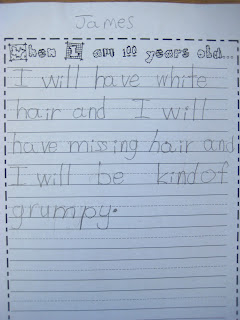 James
When I am 100 years old...
I will have white
hair and I will
have missing hair and
I will be kind of
grumpy.